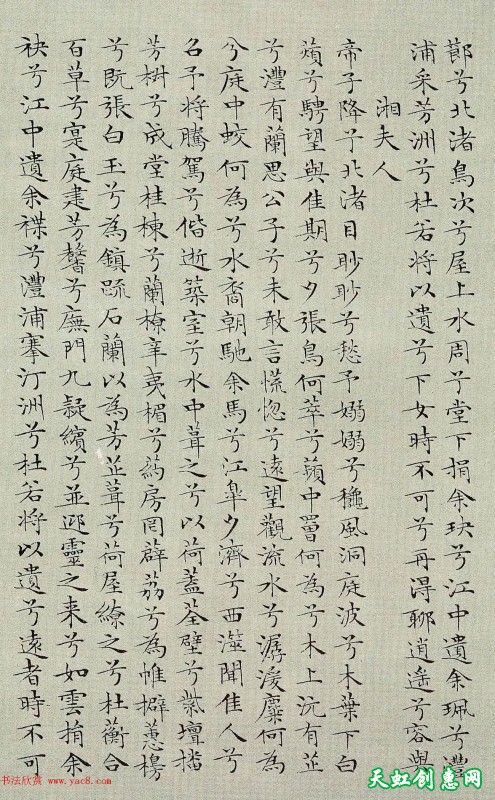 鄮兮北渚鳥次兮屋上水周兮堂下捐余玦兮江中遺余珮兮澧
浦采芳洲兮杜若將以遺兮下女時不可兮再得聊逍遙兮容與
湘夫人
帝子降兮北渚目眇眇兮愁予嫋嫋兮穐風洞庭波兮木葉下白
薠兮騁望與佳期兮夕張鳥何萃兮蘋中罾何為兮木上沅有芷
兮澧有蘭思公子兮未敢言慌惚兮遠望觀流水兮潺湲麋何為
兮庭中蛟何為兮水裔朝馳余馬兮江皋夕濟兮西澨聞佳人兮
名予將騰駕兮偕逝築室兮水中葺之兮以荷蓋荃壁兮紫壇播
芳椒兮成堂桂棟兮蘭橑辛夷楣兮葯房罔薜荔兮為帷擗蕙櫋
兮既張白玉兮為鎮疏石蘭以為芳芷葺兮荷屋繚之兮杜蘅合
百草兮寔庭建芳馨兮廡門九疑繽兮並迎靈之来兮如雲捐余
袂兮江中遺余褋兮澧浦搴汀洲兮杜若將以遺兮遠者時不可
书法欣赏 www.yac8.com
天虹创意网